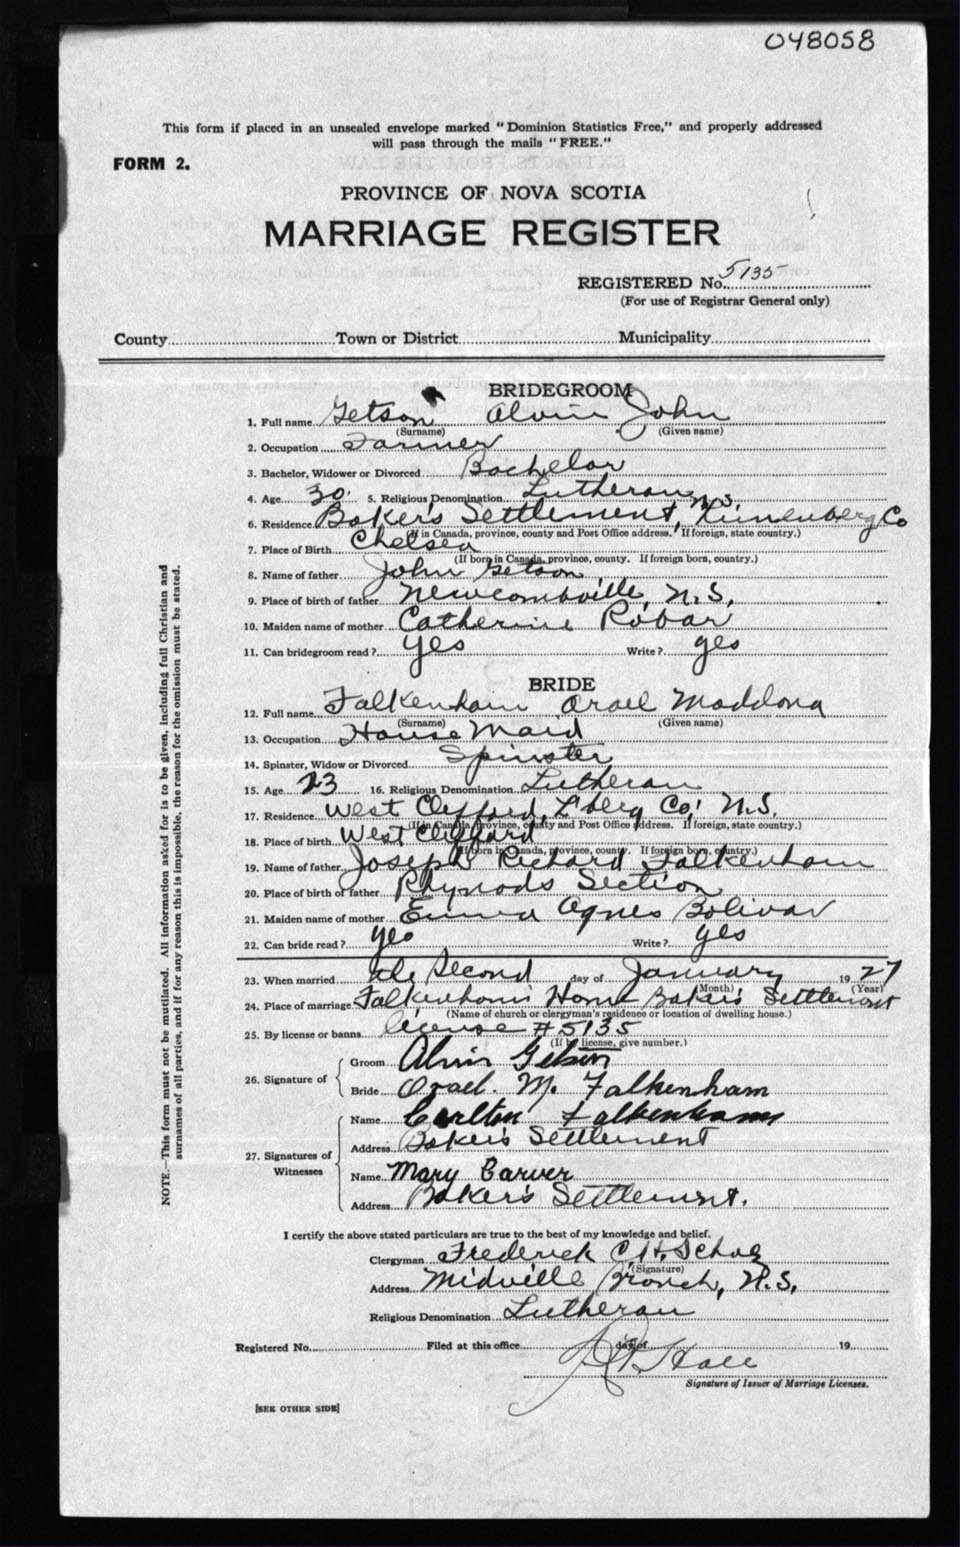 048058
This form if placed in an unsealed envelope marked "Dominion Statistics Free," and properly addressed
will pass through the mails "FREE."
FORM 2.
PROVINCE OF NOVA SCOTIA
MARRIAGE REGISTER
REGISTERED No. 5135
(For use of Registrar General only)
County Town or District Municipality
BRIDEGROOM
1. Full name Getson Alvin John
(Surname) (Given name)
2. Occupation Farmer
3. Bachelor, Widower or Divorced Bachelor
4. Age 30 5. Religious Denomination Lutheran
6. Residence Baker's Settlement, Lunenberg Co N.S.
(If in Canada, province, county and Post Office address. If foreign, state country.)
7. Place of Birth Chelsea
(If born in Canada, province, county. If foreign born, country.)
8. Name of father John Getson
9. Place of birth of father Newcombville, N.S.
10. Maiden name of mother Catherine Robar
11. Can bridegroom read? yes Write? yes
BRIDE
12. Full name Falkenham Orael Maddona
(Surname) (Given name)
13. Occupation House Maid
14. Spinster, Widow or Divorced Spinster
15. Age 23 16. Religious Denomination Lutheran
17. Residence West Clifford, L'berg Co, N.S.
(If in Canada, province, county and Post Office address. If foreign, state country.)
18. Place of birth West Clifford
(If born in Canada, province, county. If foreign born, country.)
19. Name of father Joseph Richard Falkenham
20. Place of birth of father Section
21. Maiden name of mother Emma Agnes Bolivar
22. Can bride read? yes Write? yes
23. When married the Second day of January 1927
(Month) (Year)
24. Place of marriage Falkenham's Home Baker's Settlement
(Name of church or clergyman's residence or location of dwelling house.)
25. By license or banns license #5135
(If by license, give number.)
26. Signature of Groom Alvin Getson
Bride Orael. M. Falkenham
27. Signatures of Witnesses Name Carlton Falkenham
Address Baker's Settlement
Name Mary Carver
Address Baker's Settlement.
I certify the above stated particulars are true to the best of my knowledge and belief.
Clergyman Frederick C.H. Scholz
(Signature)
Address Midville Branch, N.S.
Religious Denomination Lutheran
Registered No. Filed at this office day of 19
Hall
Signature of Issuer of Marriage Licenses.
[SEE OTHER SIDE]
NOTE.—This form must not be mutilated. All information asked for is to be given, including full Christian and
surnames of all parties, and if for any reason this is impossible, the reason for the omission must be stated.